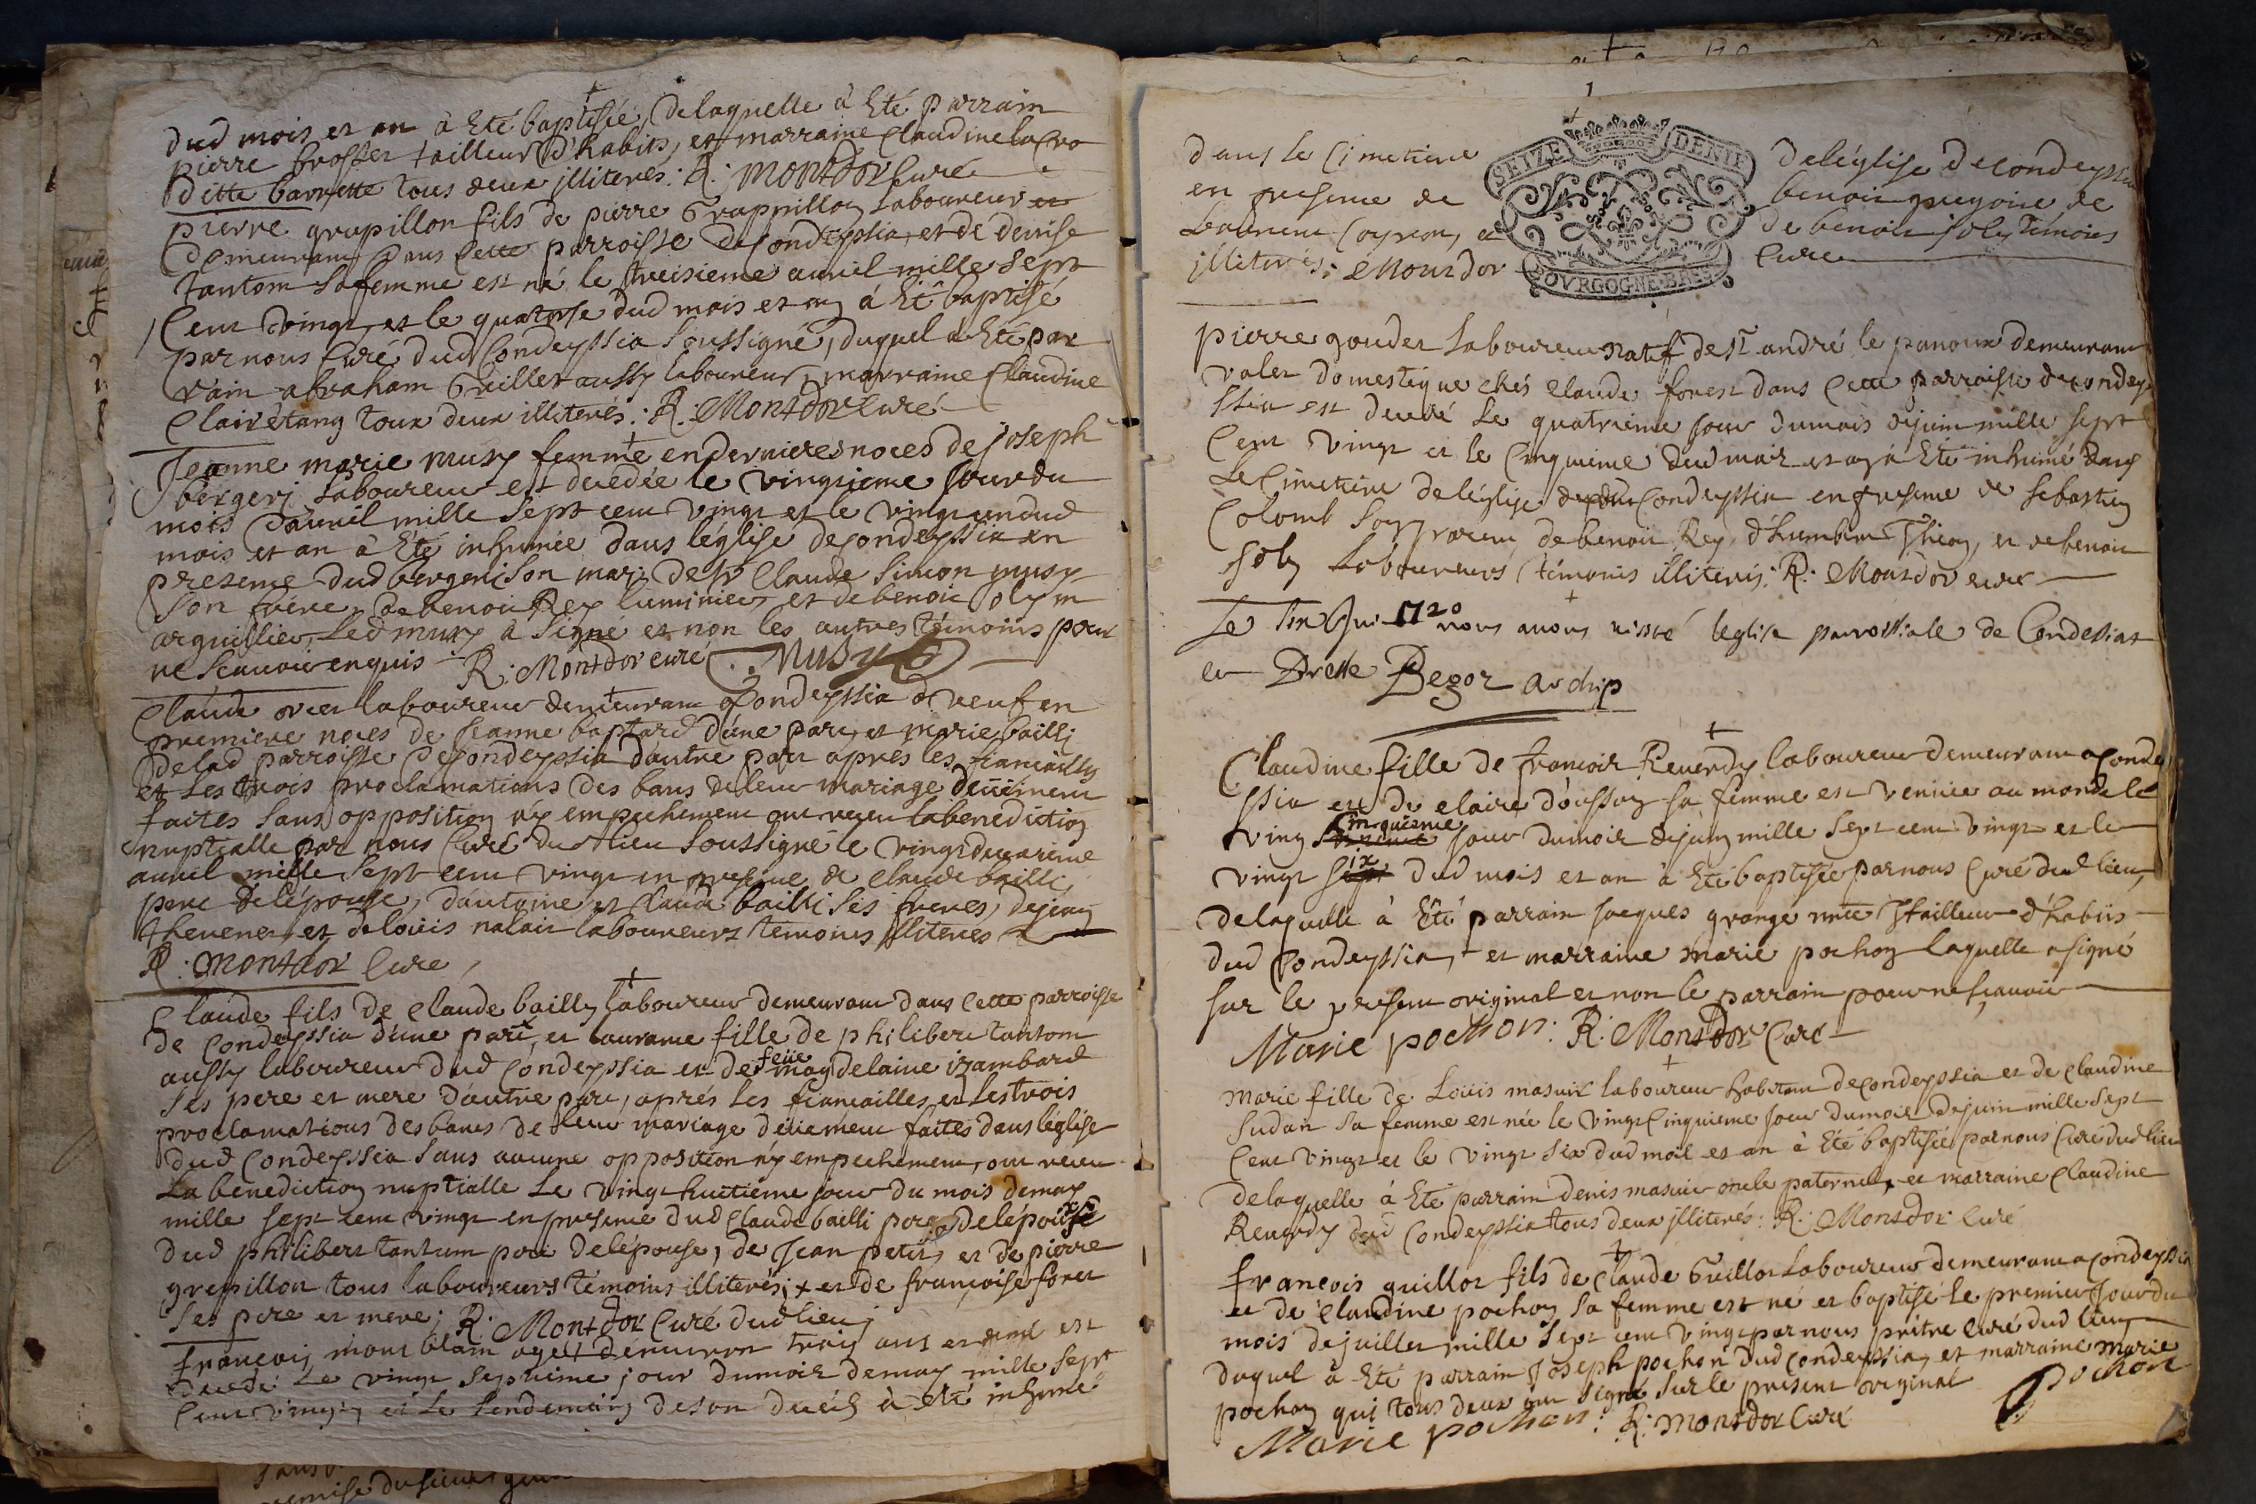 dud mois et an à Eté baptisée, delaquelle à Eté parrain
pierre brosset tailleur d'habits, et marraine Claudine lacro
ditte barnette tous deux illiterés: R: Montdor Curé
pierre grapillon fils de pierre Grappillon Laboureur
demeurant dans cette parroisse de Condeyssia, et de denise
tantom sa femme est né le treisieme avril mille sept
Cent vingt, et le quatorse dud mois et an à Eté baptisé
par nous Curé dud Condeyssia soussigné, duquel à Eté par
rain abraham Guillet aussy laboureur, marraine Claudine
Clairétang tous deux illiterés: R: Montdor Curé
Jeanne marie musy femme en dernieres noces de joseph
bergery Laboureur est decedée le vingtieme jour du
mois d'avril mille sept cent vingt et le vingt un dud
mois et an à Eté inhumée dans léglise de Condeyssia en
presence dud bergeri son mari, de Sr Claude Simon musy
son frere, de benoit Rey luminier et de benoit joly m
arguillier, led musy à signé et non les autres témoins pour
ne scavoir enquis R: Montdor curé Musy
Claude laboureur demeurant à Condeyssia veuf en
premiere noces de Jeanne bastard d'une part, et marie bailli
delad parroisse de Condeyssia d'autre part apres les fiancailles
et les trois proclamations des bans de leur mariage deüement
faites sans opposition ny empechement ont receu la benediction
nuptialle par nous Curé dud lieu soussigné le vingt deuxieme
avril mille sept cent vingt en presence de Claude bailli,
pere delépouse, d'antoine et Claude bailli ses freres, de jean
thevenet, et de loüis nalair laboureurs temoins illiterés
R: Montdor Curé,
Claude fils de Claude bailly laboureur demeurant dans cette parroisse
de Condeyssia d'une part, et laurance fille de philibert tantom
aussy laboureur dud Condeyssia et de feüe magdelaine izambard
ses pere et mere d'autre part, aprés les fiancailles et les trois
proclamations des bancs de leur mariage deüement faites dans léglise
dud Condeyssia sans aucune opposition ny empechement, ont receu
La benediction nuptialle le vingt huitiéme jour du mois de may
mille sept cent vingt en presence dud Claude bailli pere delépouse
dud philibert tantum pere delépouse, de Jean petit, et de pierre
grepillon tous laboureurs témoins illiterés; + et de francoise foret
ses pere et mere; R: Montdor Curé dud lieu;
francois mont blam agé denviron trois ans et demi est
decedé Le vingt septieme jour du mois de may mille sept
Cent vingt, et le lendemain de son decés à Eté inhumé
1
dans le Cimetiere deléglise de Condeyssia
en presence de benoit gregoire de
Laurent Coyron, et de benoit joly Témoins
illiterés: Montdor Curé
SEIZE DENIE
BOVRGOGNE BRE
pierre goudet Laboureur natif de St andré le panoux demeurant
valet domestique chés Claude forest dans cette parroisse de Condey
ssia est decedé Le quatrieme jour du mois de juin mille sept
Cent vingt et le Cinquieme dud mois et an à Eté inhumé dans
Le Cimetiere deléglise dud Condeyssia en presence de Sebastien
Colomb de benoit Rey, d'humbert Thion, et de benoit
joly Laboureurs témoins illiterés: R: Montdor curé
Le juin 1720 nous avons visité léglise parroissiale de Condessiat
Begoz archip
Claudine fille de francois Reverdy laboureur demeurant a Conde
ssia et de claire d'oussoy sa femme est veniie au monde le
ving cinquieme jour du mois de juin mille sept cent vingt et le
vingt six dud mois et an à Eté baptisée par nous Curé dud lieu,
delaquelle à Eté parrain jacques grange tailleur d'habits
dud Condeyssia, et marraine marie pochon laquelle a signé
sur le present original et non le parrain pour ne scavoir
Marie pochon: R: Montdor Curé
Marie fille de Loüis masuir laboureur habitant de Condeyssia et de Claudine
Sudan sa femme est née le vingt Cinquieme jour du mois de juin mille sept
Cent vingt et le vingt six dud mois et an à Eté baptisée par nous Curé dud lieu
delaquelle à Eté parrain denis masuir oncle paternel, et marraine Claudine
Reverdy dud Condeyssia tous deux illiterés: R: Montdor Curé
francois guillot fils de Claude Guillot Laboureur demeurant a Condeyssia
et de Claudine pochon sa femme est né et baptisé le premier jour du
mois de juillet mille sept cent vingt par nous prêtre Curé dud lieu
duquel à Eté parrain Joseph pochon dud Condeyssia, et marraine marie
pochon qui tous deux ont signé sur le present original pochon
Marie pochon: R: Montdor Curé